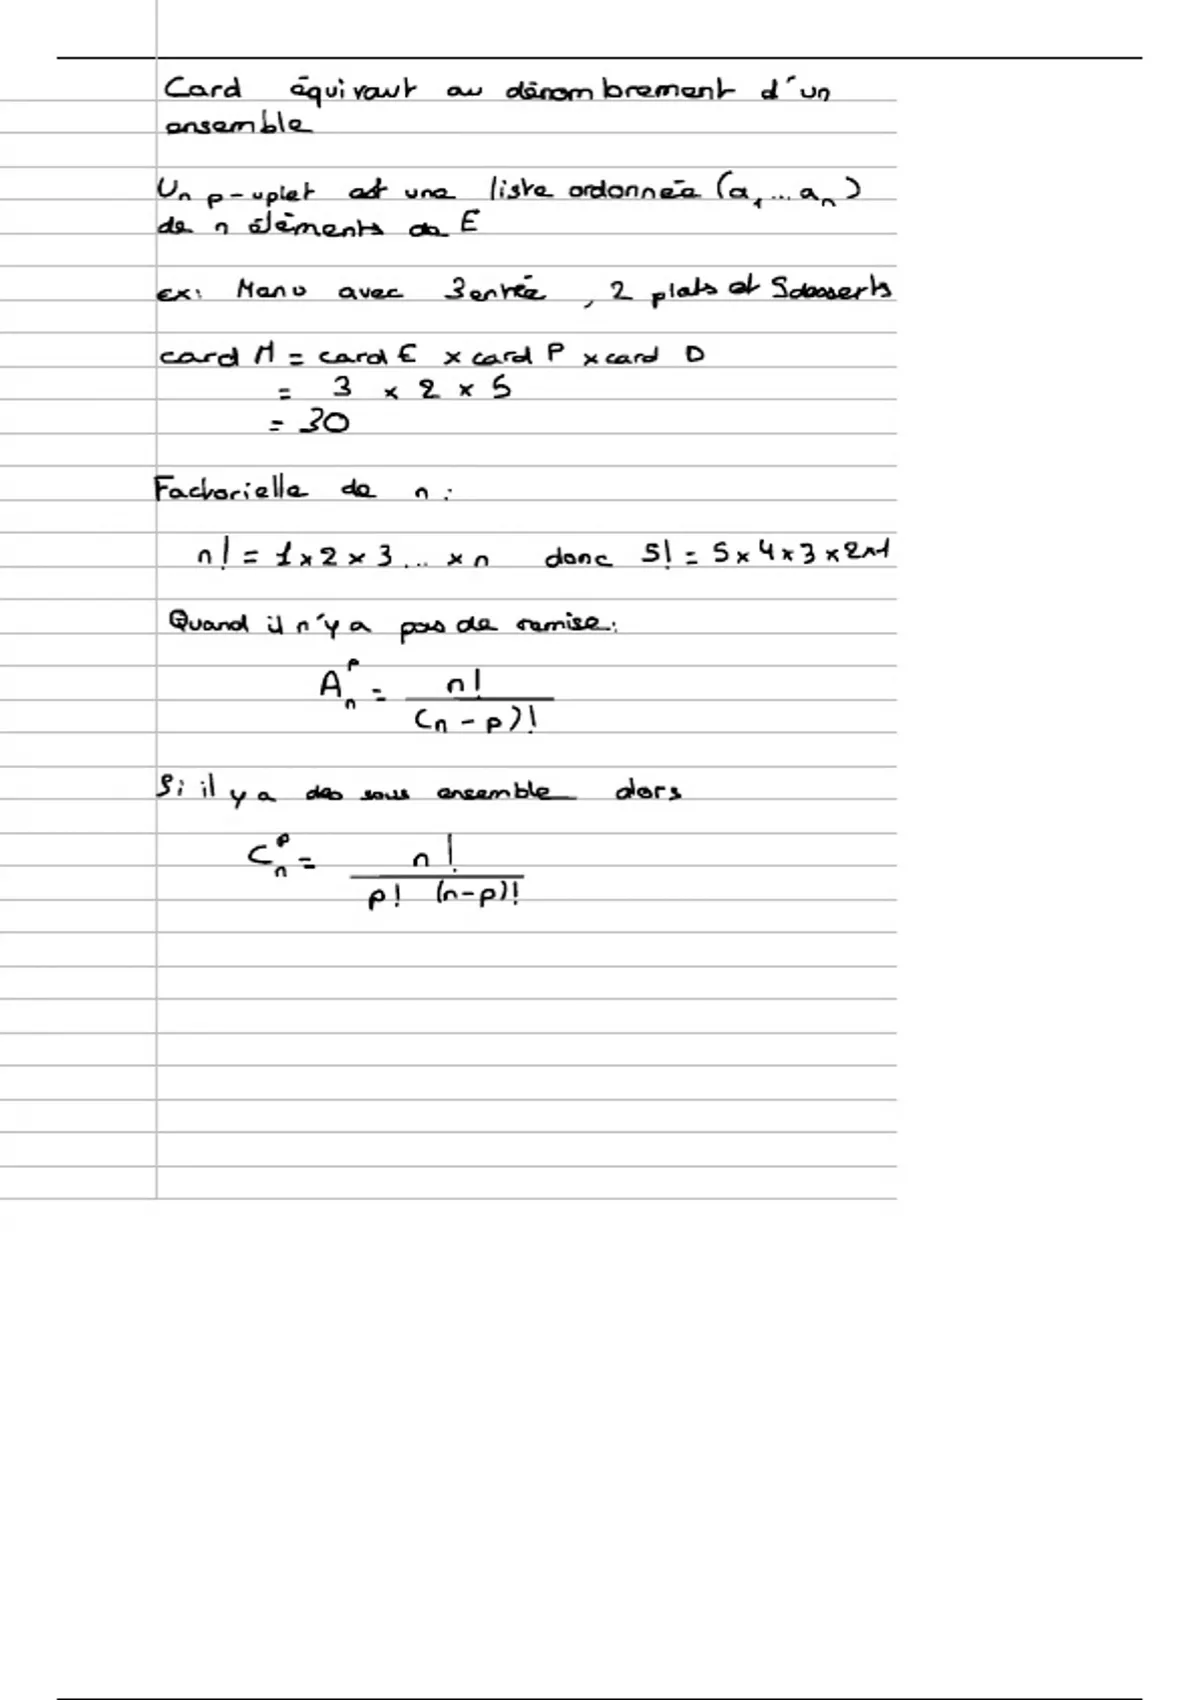 Card équivaut au dénombrement d'un
ensemble
Un p-uplet est une liste ordonnée (a₁...aₙ)
de n éléments de E
ex: Menu avec 3 entrée, 2 plats et 5 desserts
card M = card E x card P x card D
= 3 x 2 x 5
= 30
Factorielle de n :
n! = 1 x 2 x 3 ... x n donc 5! = 5 x 4 x 3 x 2 x 1
Quand il n'y a pas de remise:
Aₙᵖ = n! / (n - p)!
Si il y a des sous ensemble alors
Cₙᵖ = n! / p! (n-p)!